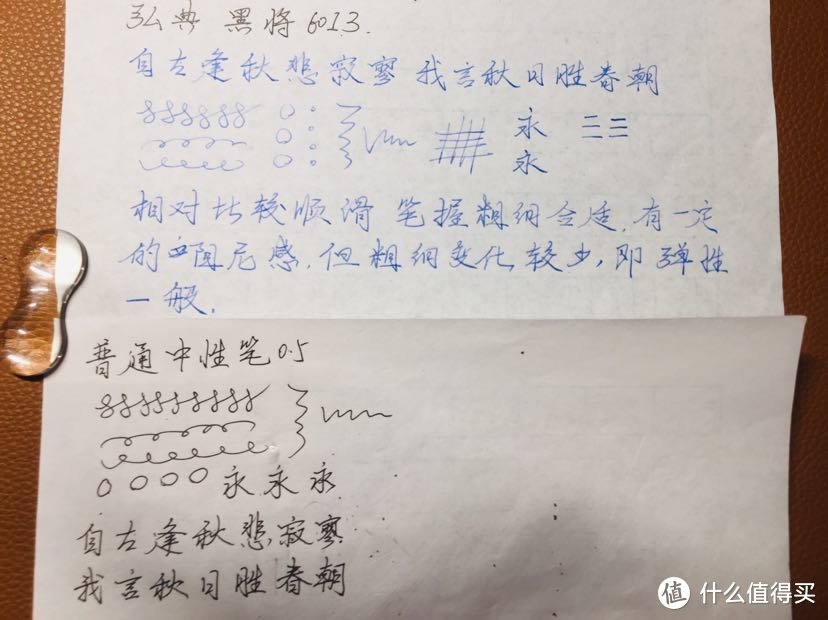 弘典 黑将 6013.
自古逢秋悲寂寥 我言秋日胜春朝
永 三三
永
相对比较顺滑 笔握粗细合适,有一定
的阻尼感,但粗细变化较少,即弹性
一般.
普通中性笔0.5
永永永
自古逢秋悲寂寥
我言秋日胜春朝
值 什么值得买